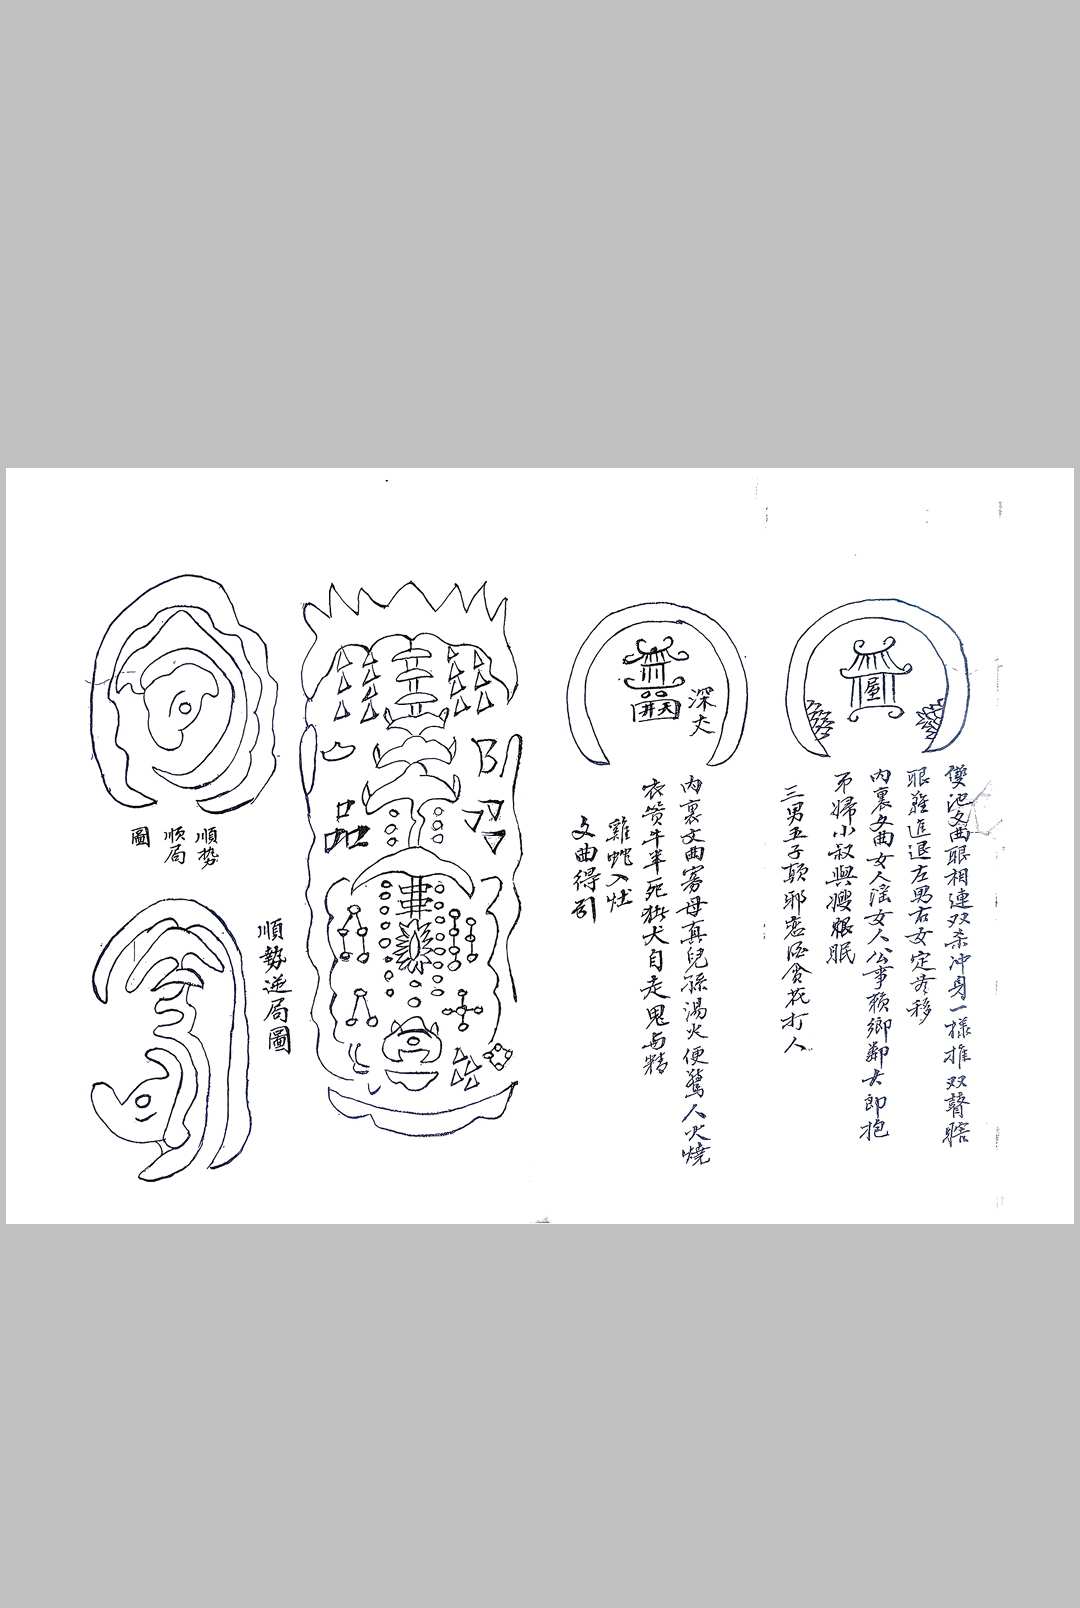 屋
雙池文曲眼相連双杀冲身一樣推双瞽瞎
眼難進退左男右女定其移
内裏文曲女人淫女人公事賴鄉鄰大郎抱
弟婦小叔與嫂眼眠
三男五子顛邪恋酒貪花打人
深丈
天井
内裏文曲寡母真兒孫湯火便驚人火燒
衣失牛羊死猪犬自走鬼与精
雞蛇入灶
文曲得
順势
順局
圖
順勢逆局圖